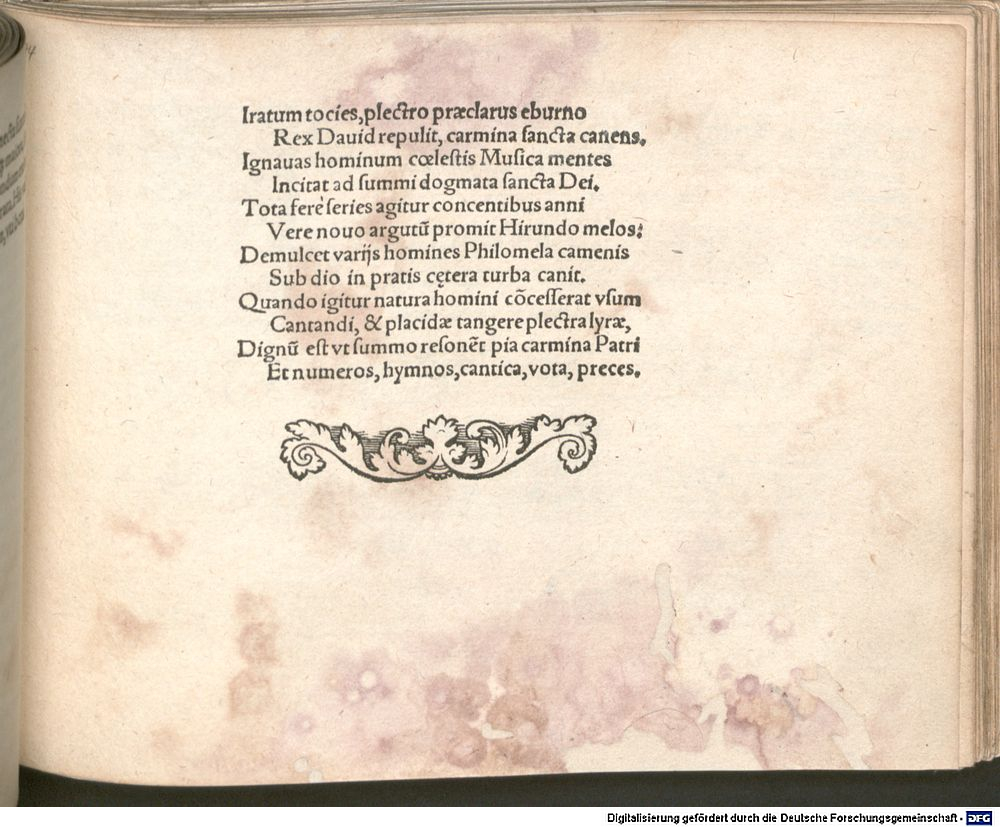 Iratum tocies, plectro præclarus eburno
Rex Dauid repulit, carmina sancta canens.
Ignauas hominum cœlestis Musica mentes
Incitat ad summi dogmata sancta Dei.
Tota ferè series agitur concentibus anni
Vere nouo argutū promit Hirundo melos:
Demulcet varijs homines Philomela camenis
Sub dio in pratis cętera turba canit.
Quando igitur natura homini cōcesserat vsum
Cantandi, & placidæ tangere plectra lyræ,
Dignū est vt summo resonēt pia carmina Patri
Et numeros, hymnos, cantica, vota, preces.
Digitalisierung gefördert durch die Deutsche Forschungsgemeinschaft - DFG